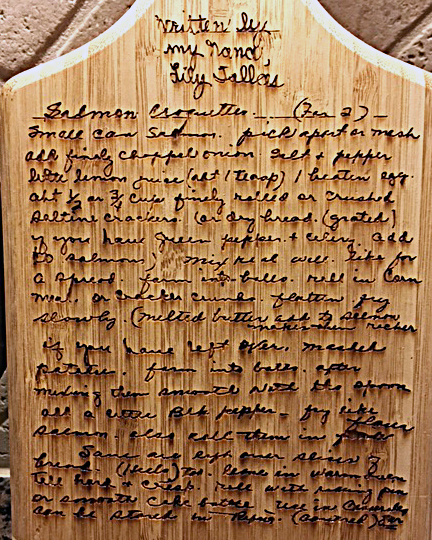 Written by
my Nana,
Lily
Salmon Croquettes (For 2)
Small can Salmon. pick apart or mash
add finely chopped onion. Salt + pepper
little lemon juice (abt 1 teasp) 1 beaten egg.
abt ½ or ¾ cup finely rolled or crushed
Saltine crackers. (or dry bread. (grated)
if you have green pepper + celery. add
to salmon) mix real well. like for
a spread. form into balls. roll in Corn
meal. or cracker crumbs. flatten fry
slowly. (melted butter add to salmon
makes them richer
if you have left over. mashed
potatoes. form into balls. after
mixing them smooth with the spoon
add a little Blk pepper - fry like
salmon. also roll them in flour
Save over slices of
bread. (heels) too. leave in warm oven
till hard + crisp. Roll with rolling pin
or smooth bottle. use in
can be stored in (covered)